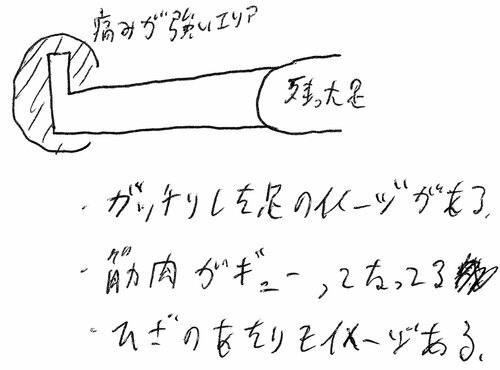 痛みが強いエリア
残った足
・ガッチリした足のイメージがある。
・筋肉がギューってなってる
・ひざのあたりもイメージある。